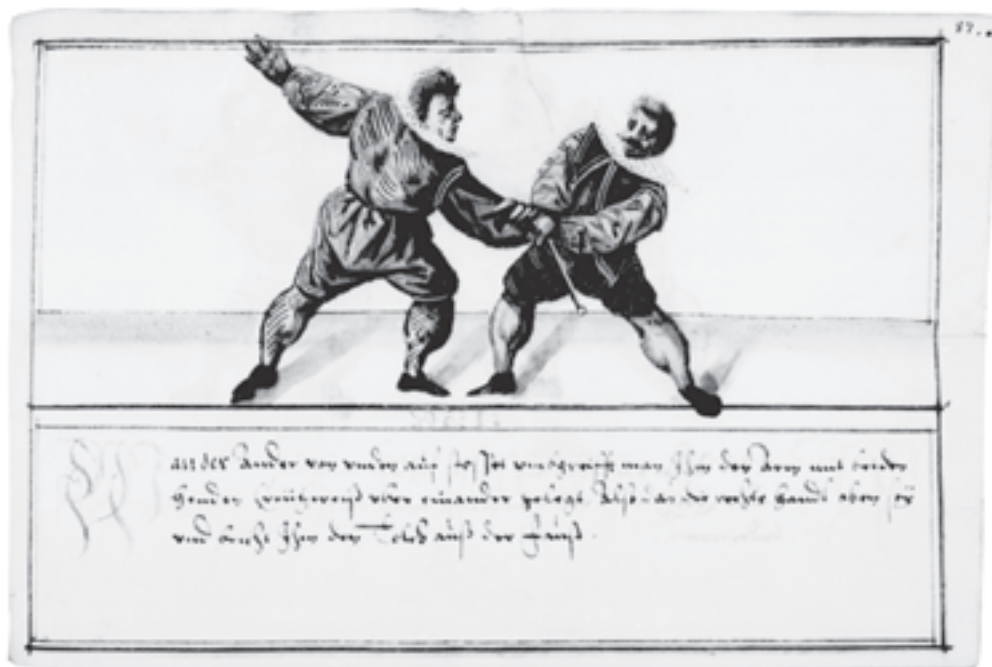 87.
Wan der Ander von vnden auf stosset vndgreifft man Ihm den Arm mit beiden
Henden Creützweiß vber einander gelegt, das die rechte Handt oben seÿ
vnd bricht Ihm den Tolch auß der Faust.